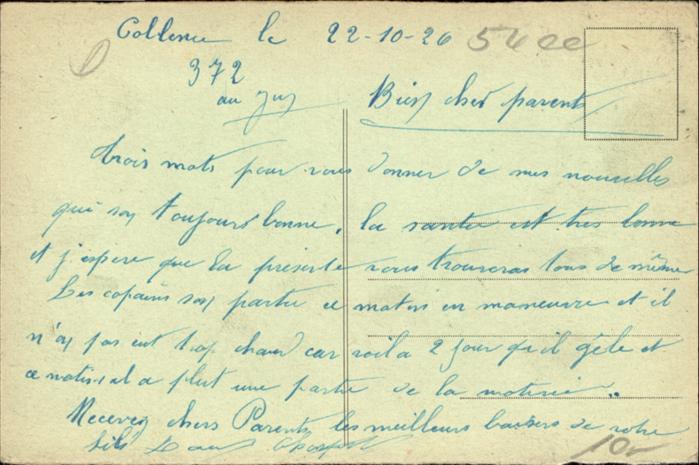 le 22-10-26
372
au jus
Bien cher parents
trois mots pour vous donner de mes nouvelles
qui son toujours bonne, la santée est très bonne
et j'espere que la présente vous trouveras tous de même
Les copains son partie ce matin en maneuvre et il
n'on pas eut trop chaud car voila 2 jour qu'il gèle et
ce matin il a plut une partie de la matinée..
Recevez chers Parents les meilleurs baisers de votre
fils
10